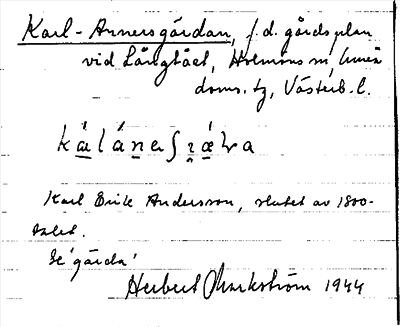 Karl-Annersgårdan, f.d. gårdsplan
vid Långtået, Holmöns sn, Umeå
doms. tg, Västerb. l.
Karl Erik Andersson, slutet av 1800-
talet.
Se 'gårda'
Herbert Markström 1944